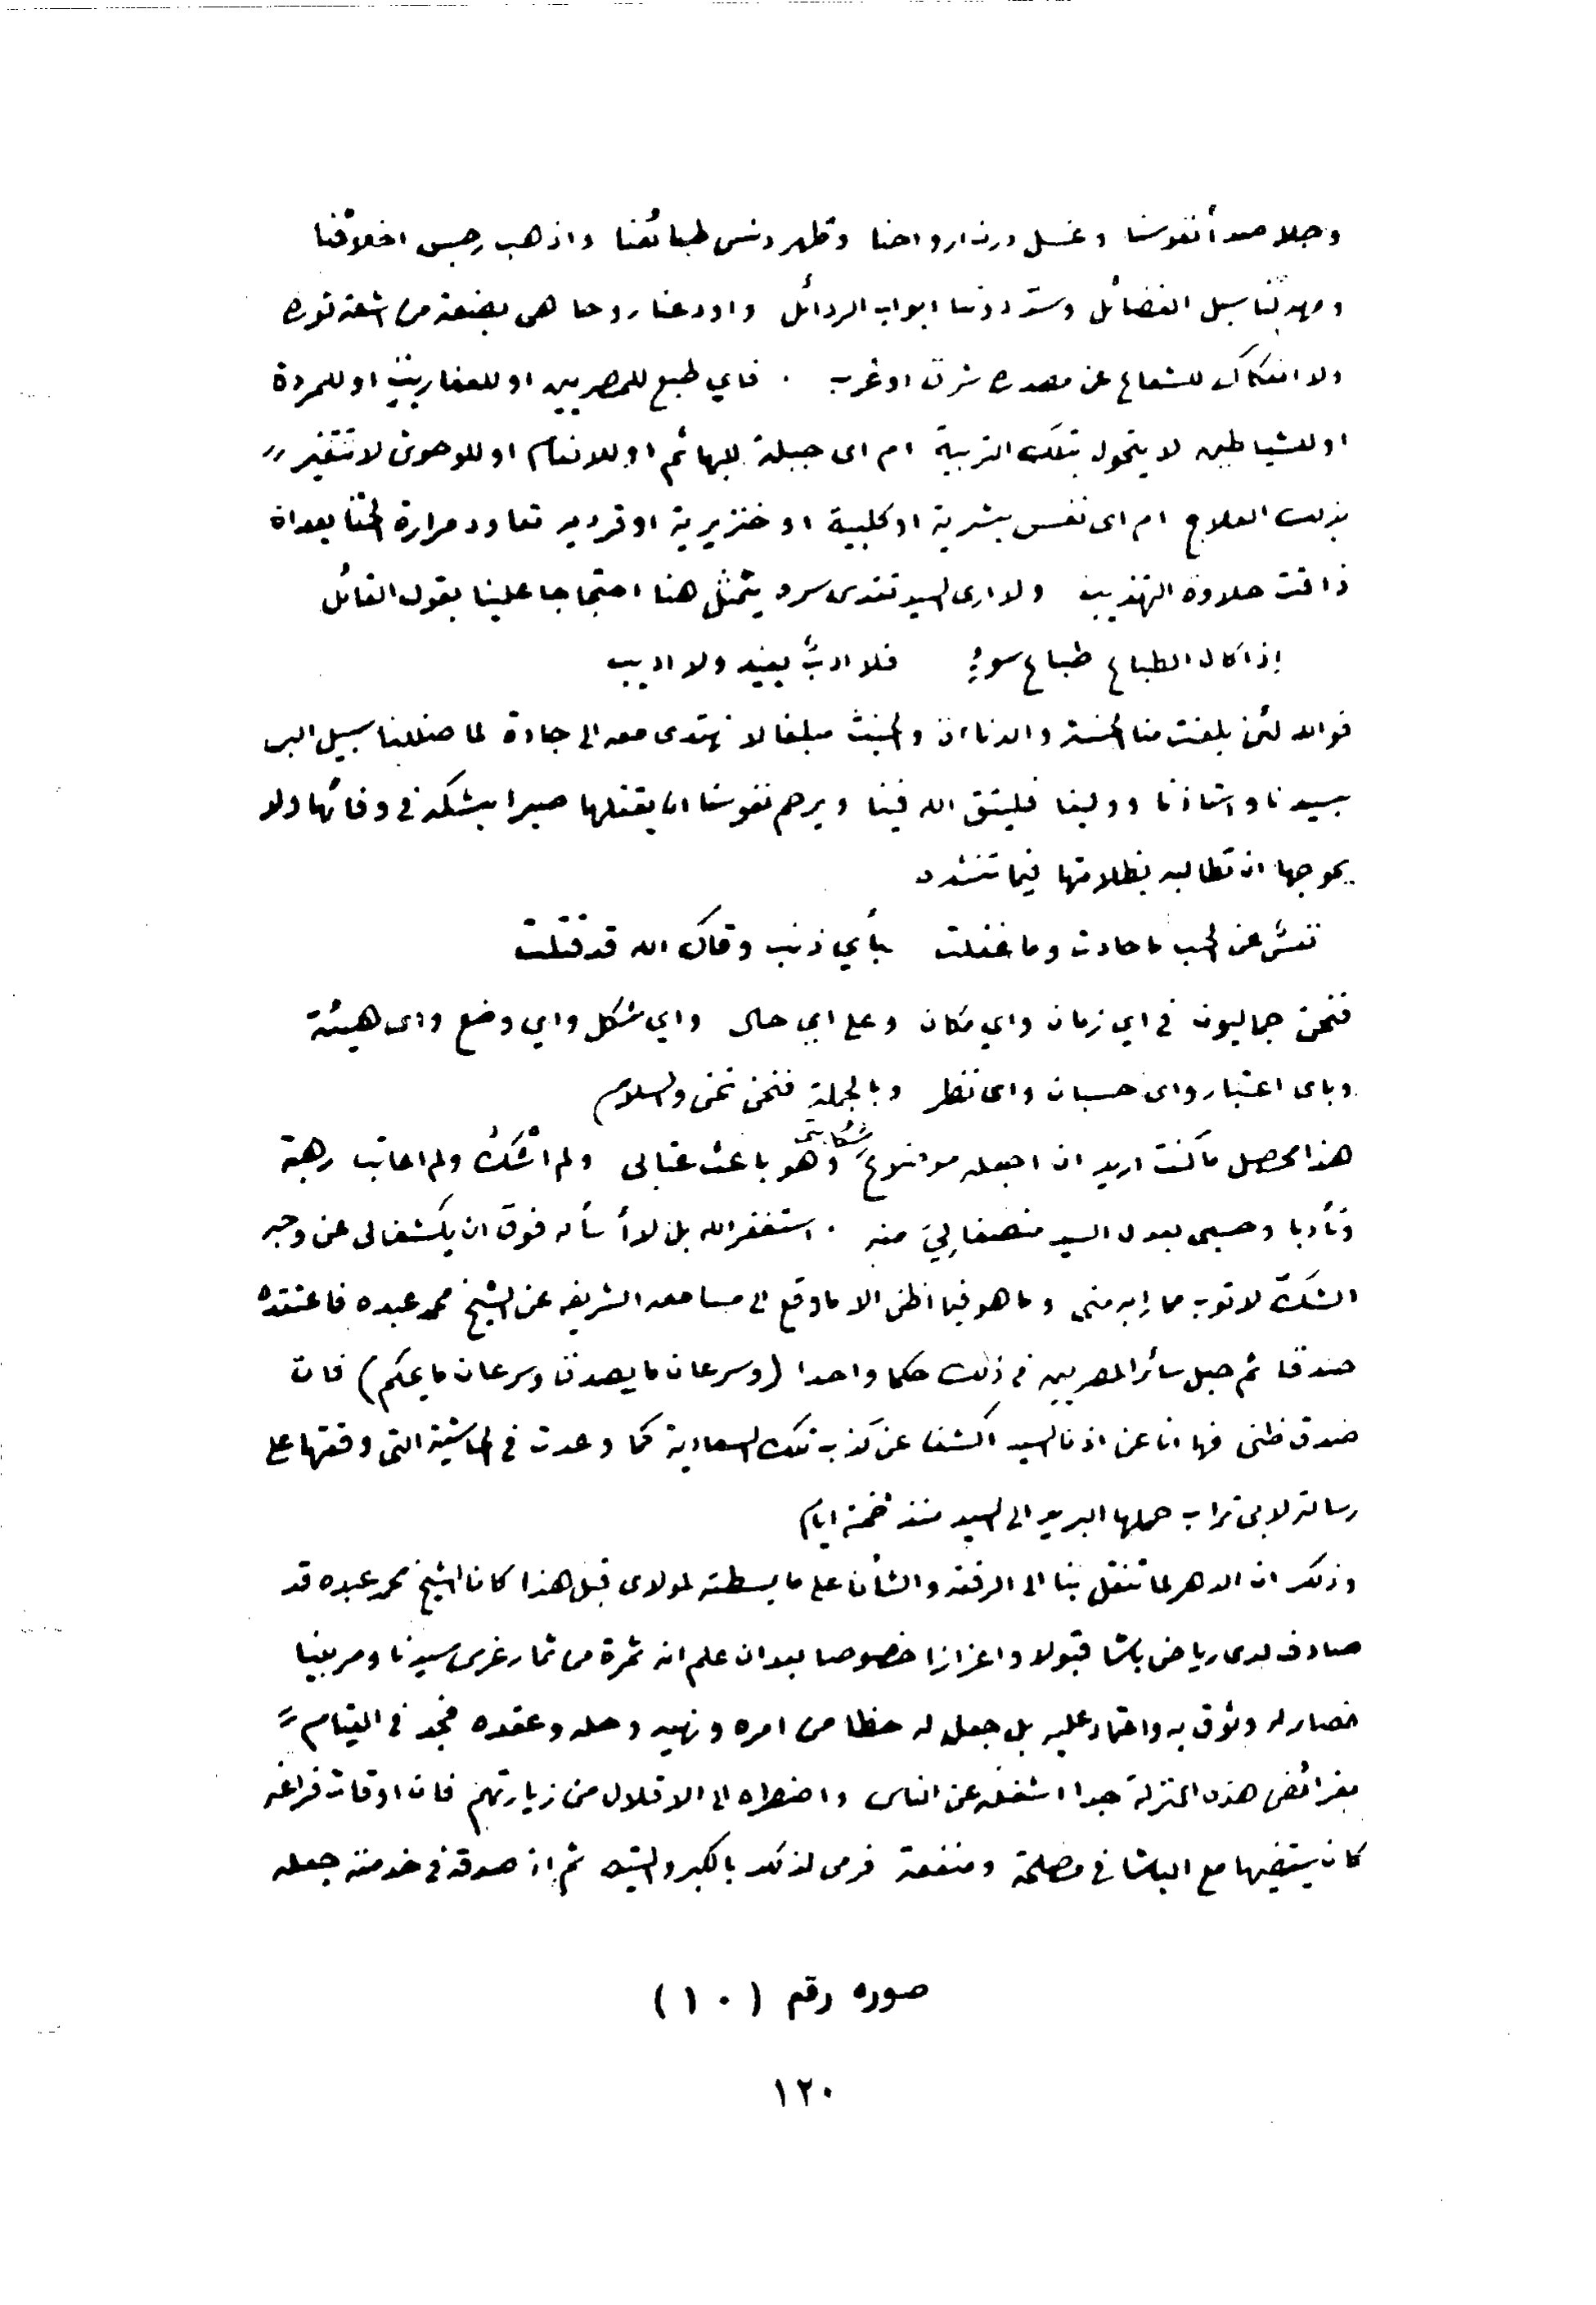 وجلا صدأ نفوسنا وغسل درن ارواحنا وطهر دنس طبائعنا واذهب رجس اخلاقنا
ومهد لنا سبل الفضائل وسد دوننا ابواب الرذائل واودعنا روحا هى بضعة من اشعة نوره
ولا انفكاك للشعاع عن مصدره شرق اوغرب . فاي طبع للمصريين او للعفاريت او للمردة
او للشياطين لا يتحول بتلك التربية ام اى جبلة للبهائم او للانعام او للوحوش لا تتغير
بذلك العلاج ام اى نفس بشرية او كلبية او خنزيرية او قردية تعاود مرارة الخنا بعد ان
ذاقت حلاوة التهذيب ولا ارى السيد تفدى سره يتمثل هنا احتجاجا علينا بقول القائل
إذا كان الطباع طباع سوءٍ فلا ادبٌ يفيد ولا اديب
فوالله لئن بلغت منا الخسة والدناءة والخبث مبلغا لا نهتدى معه الى جادة لما ضللنا سبيل البر
بسيدنا واستاذنا وولينا فليتق الله فينا ويرحم نفوسنا ان يقتلها صبرا بشكه فى وفائها ولا
يحوجها ان تطالبه بظلامتها فيما تنشده
نفسٌ عن الحب ما حادت وما غفلت بأي ذنب وقاك الله قد قتلت
فنحن جماليون فى اي زمان واي مكان وعلى اي حال واي شكل واي وضع واى هيئة
وباى اعتبار واى حسبان واى نظر وبالجملة فنحن نحن والسلام
هذا محصل ما كنت اريد ان اجعله موضوع شكايتى وهو باعث عتابى ولم أشك ولم اعاتب رهبة
وتأدبا وحسبى بعدل السيد منصفا لِيَ منه . استغفر الله بل لا أسأله فوق ان يكشف لى عن وجه
الشك لاتوب مما رابه منى وما هو فيما اظن الا ما وقع الى مسامعه الشريفه عن الشيخ محمد عبده فاعتقده
صدقا ثم جعل سائر المصريين فى ذلك حكما واحدا (وسرعان ما يصدق وسرعان ما يحكم) فان
صدق ظنى فها انا عن اذن السيد اكشف عن كذب تلك السعاية كما وعدت فى الحاشية التى وقعتها على
رسالة لابى تراب حملها البريد الى السيد منذ خمسة ايام
وذلك ان الدهر لما تنقل بنا الى الرفعة والشأن على ما بسطته لمولاى قبل هذا كان الشيخ محمد عبده قد
صادف لدى رياض باشا قبولا واعزازا خصوصا بعد ان علم انه ثمرة من ثمار غرس سيدنا ومربينا
فصار له وثوق به واعتماد عليه بل جعل له حظا من امره ونهيه وحله وعقده فجد فى القيام
بفرائض هذه المنزلة جدا اشغله عن الناس واضطره الى الاقلال من زيارتهم فان اوقات فراغه
كان يقضيها مع الباشا في مصلحة ومنفعة فرمى لذلك بالكبر والتيه ثم إن صدقه فى خدمته جعله
صوره رقم (١٠)
١٢٠